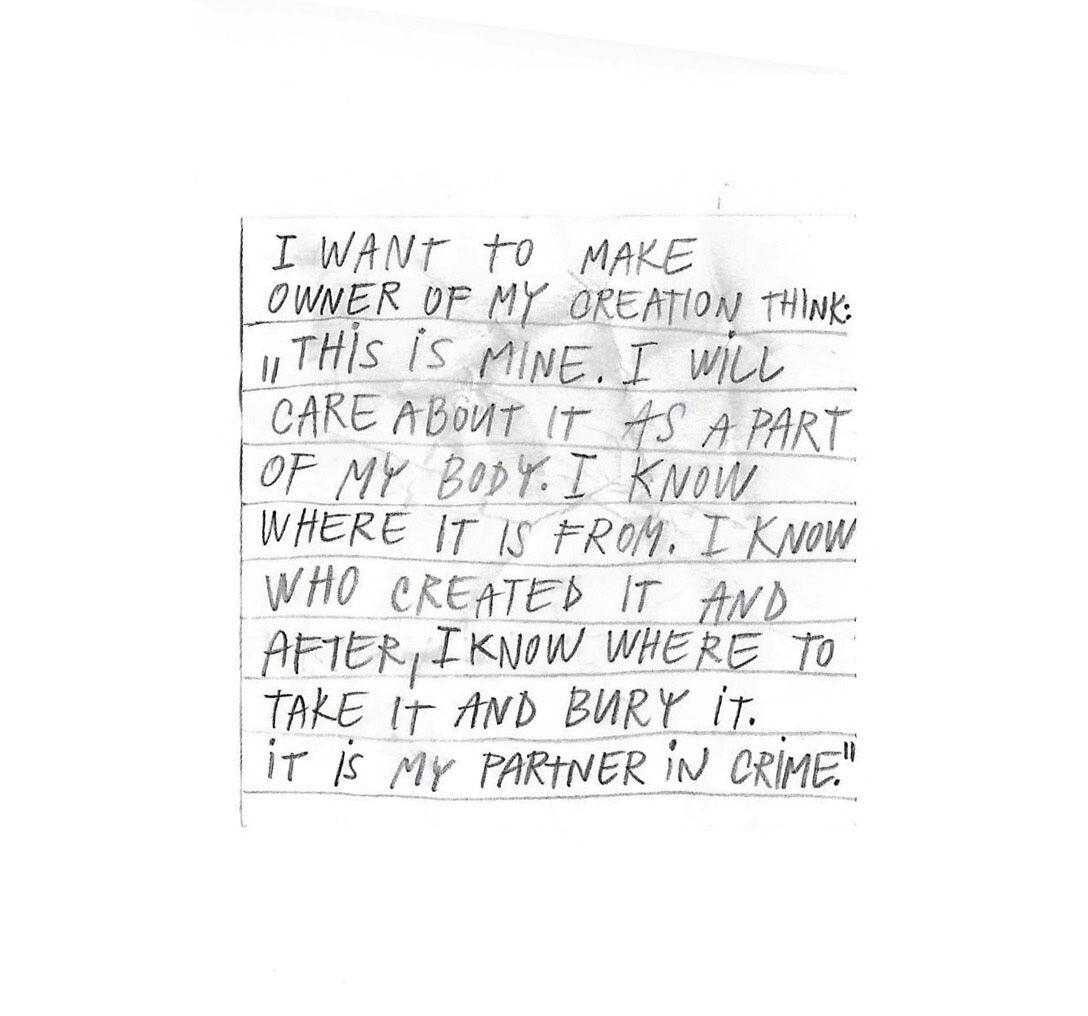 I WANT TO MAKE
OWNER OF MY CREATION THINK:
„THiS iS MINE. I WiLL
CARE ABOUT IT AS A PART
OF MY BODY. I KNOW
WHERE IT IS FROM. I KNOW
WHO CREATED IT AND
AFTER, I KNOW WHERE TO
TAKE IT AND BURY iT.
iT iS MY PARTNER iN CRiME."